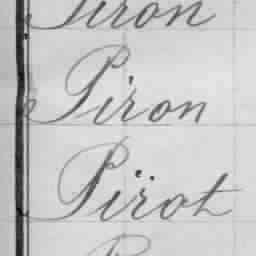 Piron
Piron
Pïrot